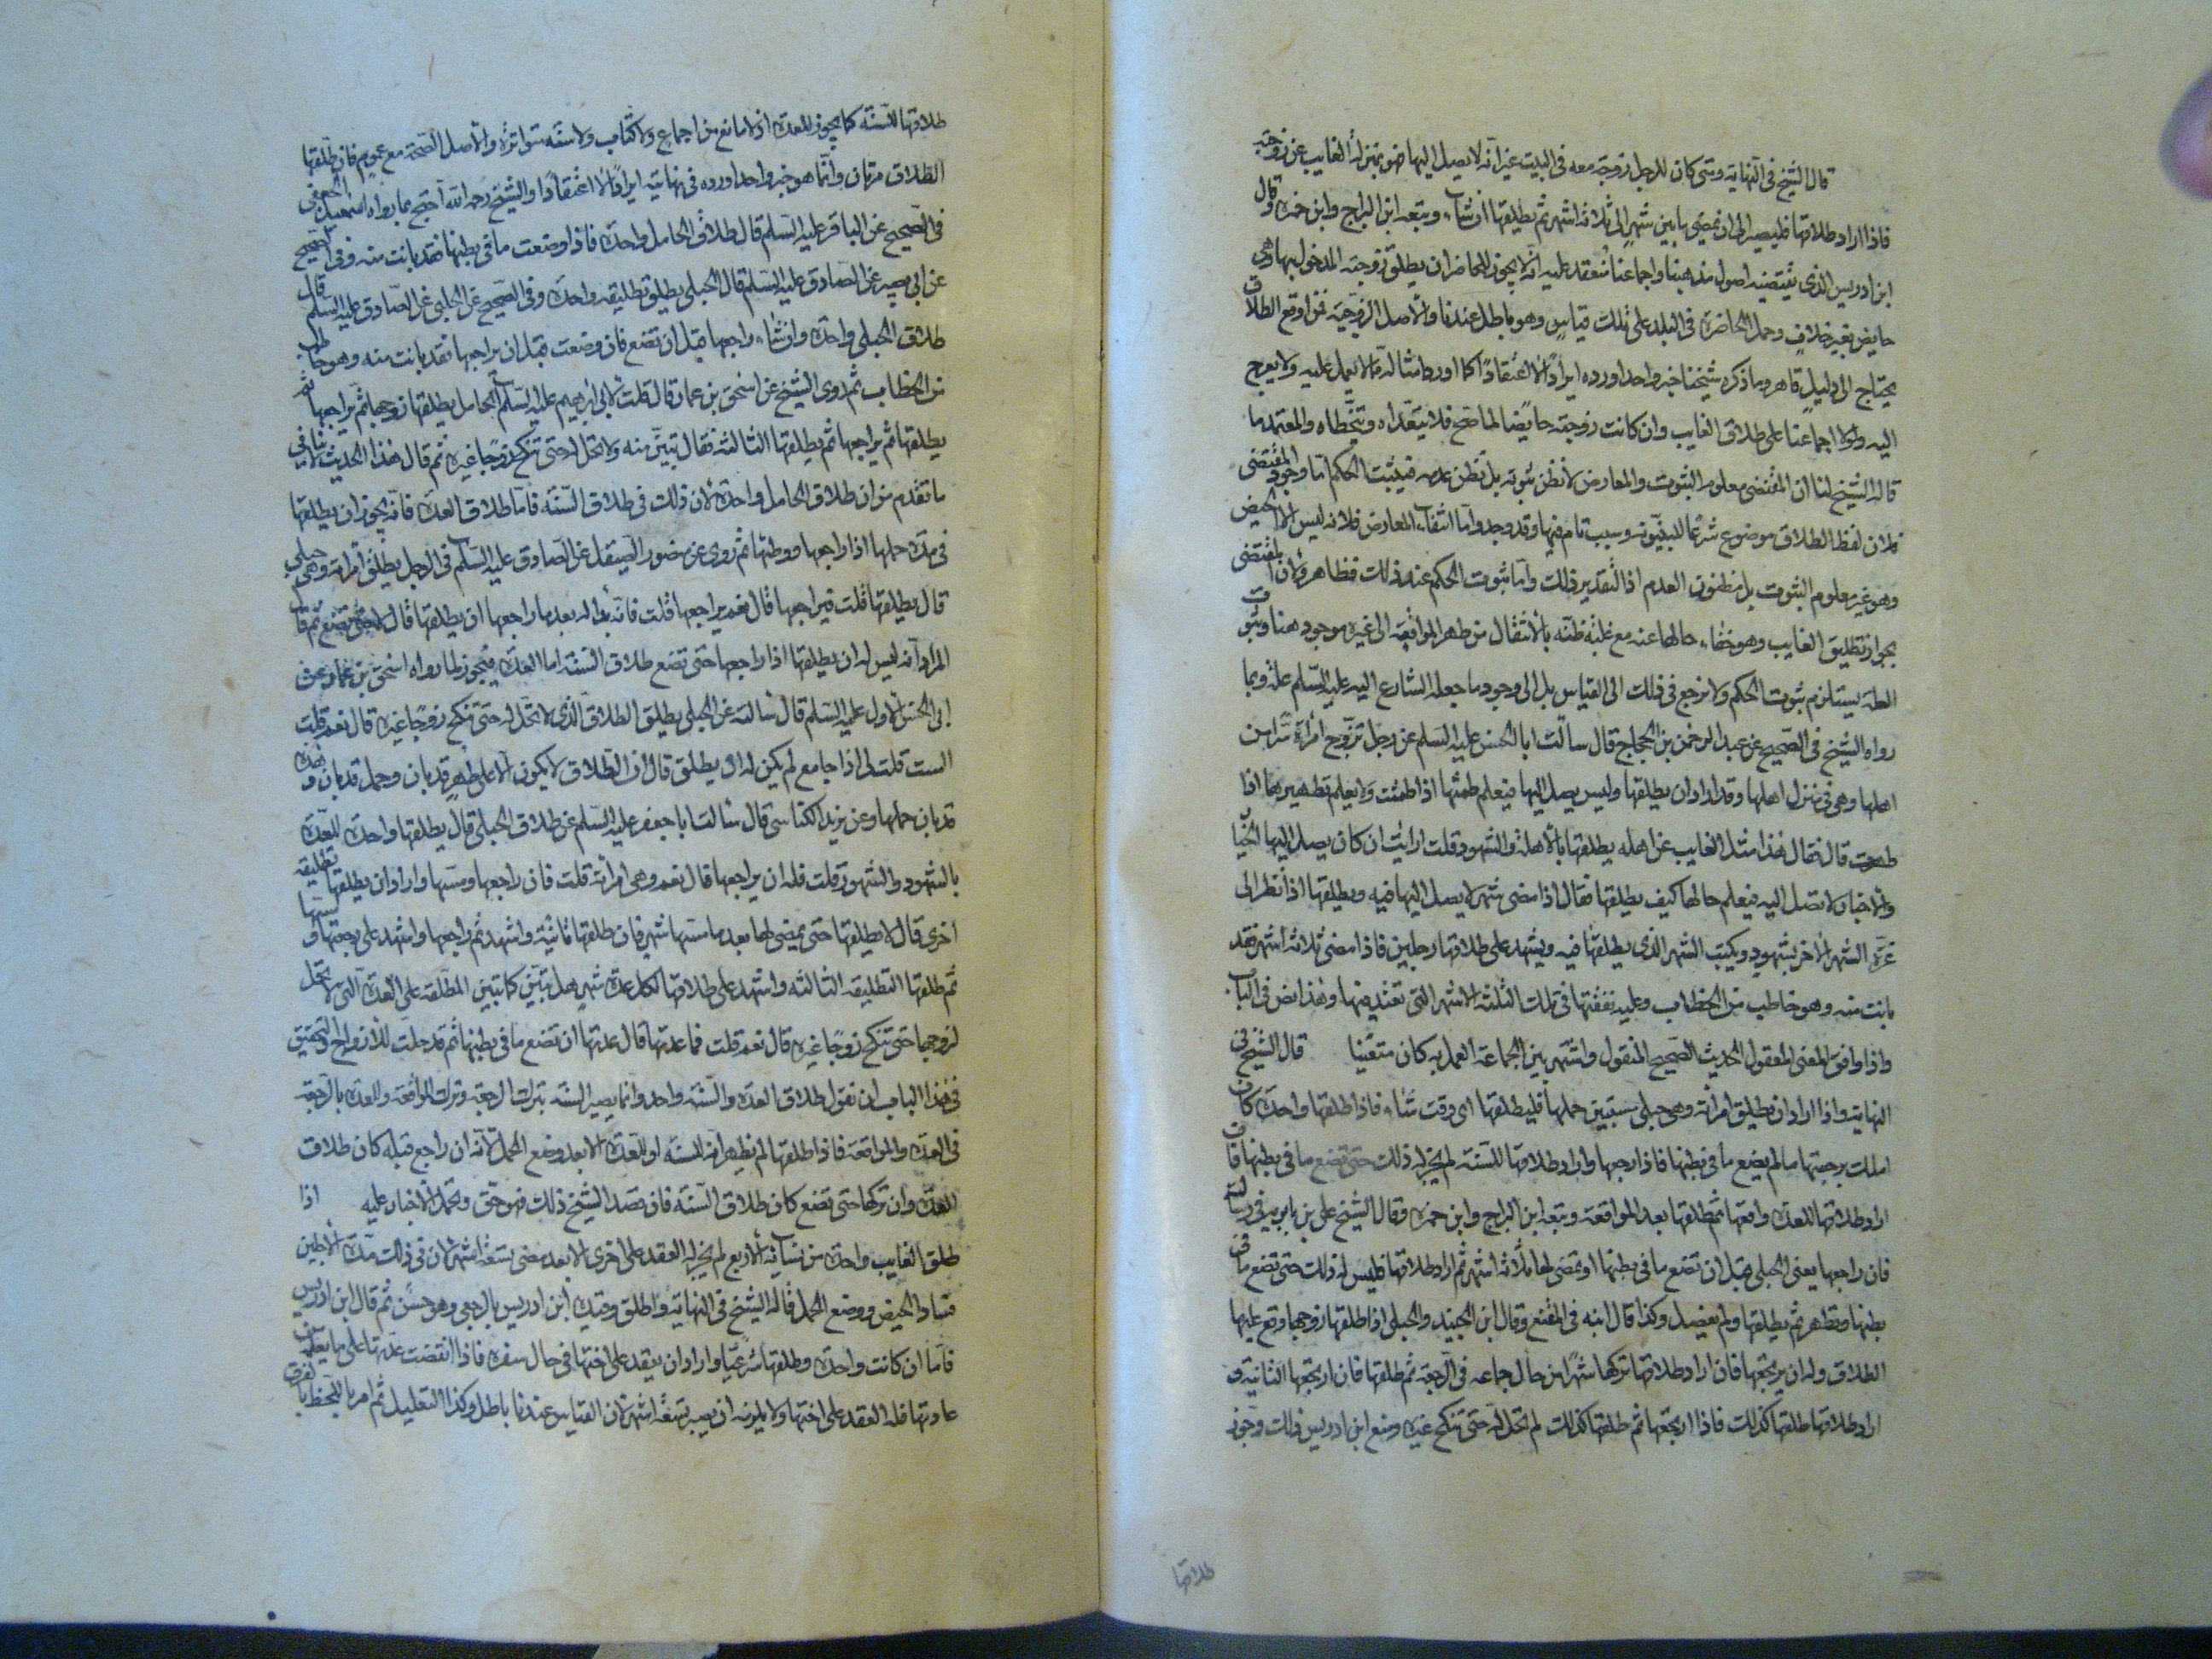 قال الشيخ في النهاية ومتى كان للرجل زوجة معه في البيت غير انه لا يصل اليها فهو بمنزلة الغايب عن زوجته
فاذا اراد طلاقها فليصبر الى ان يمضي ما بين شهر الى ثلاثة اشهر ثم يطلقها ان شاء وتبعه ابن البراج وابن حمزة وقال
ابن ادريس الذي يقتضيه اصول مذهبنا واجماعنا منعقد عليه انه لا يجوز للحاضر ان يطلق زوجته المدخول بها وهي
حايض بغير خلاف وحمل الحاضرة في البلد على تلك قياس وهو باطل عندنا والاصل الزوجية فمن اوقع الطلاق
يحتاج الى دليل قاهر وما ذكره شيخنا خبر واحد اورده ايرادا لا اعتقادا كما اورد امثاله مما لا يعمل عليه ولا يعرج
اليه ولولا اجماعنا على طلاق الغايب وان كانت زوجته حايضا لما صح فلا نتعداه ونتخطاه والمعتمد ما
قاله الشيخ لنا ان المقتضي معلوم الثبوت والمعارض لا نظن ثبوته بل نظن عدمه فيثبت الحكم اما وجود المقتضي
فلان لفظ الطلاق موضوع شرعا للبينونة وسبب تام فيها وقد وجد واما انتفاء المعارض فلانه ليس الا الحيض
وهو غير معلوم الثبوت بل مظنون العدم اذ التقدير ذلك واما ثبوت الحكم عند ذلك فظاهر ولان المقتضي
بجواز تطليق الغايب وهو خفاء حالها عنه مع غلبة ظنه بالانتقال من طهر المواقعة الى غيره موجود هنا وثبوت
العلة يستلزم ثبوت الحكم ولا نرجع في ذلك الى القياس بل الى وجود ما جعله الشارع اليه عليه السلم علة وبما
رواه الشيخ في الصحيح عن عبد الرحمن بن الحجاج قال سالت ابا الحسن عليه السلم عن رجل تزوج امراة سرا من
اهلها وهي في منزل اهلها وقد اراد ان يطلقها وليس يصل اليها فيعلم طمثها اذا طمثت ولا يعلم بطهرها اذا
طهرت قال فقال هذا مثل الغايب عن اهله يطلقها بالاهلة والشهود قلت ارايت ان كان يصل اليها احيانا
والاحيان لا يصل اليه فيعلم حالها كيف يطلقها فقال اذا مضى شهر لا يصل اليها فيه ويطلقها اذا نظر الى
غرة الشهر الاخر بشهود ويكتب الشهر الذي يطلقها فيه ويشهد على طلاقها رجلين فاذا مضى ثلاثة اشهر فقد
بانت منه وهو خاطب من الخطاب وعليه نفقتها في تلك الثلثة الاشهر التي تعتد فيها وهذا نص في الباب
واذا وافق المعنى المعقول الحديث الصحيح المنقول واشتهر بين الجماعة العمل به كان متعينا قال الشيخ في
النهاية واذا اراد ان يطلق امراته وهي حبلى مستبين حملها فليطلقها اي وقت شاء فاذا طلقها واحدة كان
املك برجعتها ما لم يضع ما في بطنها فاذا راجعها واراد طلاقها للسنة لم يجز له ذلك حتى تضع ما في بطنها فان
اراد طلاقها للعدة واقعها ثم طلقها بعد المواقعة وتبعه ابن البراج وابن حمزة وقال الشيخ علي بن بابويه في رسالته
فان راجعها يعني الحبلى قبل ان تضع ما في بطنها او تمضي لها ثلاثة اشهر ثم اراد طلاقها فليس له ذلك حتى تضع ما في
بطنها وتطهر ثم يطلقها ولم يفصل وكذا قال ابنه في المقنع وقال ابن الجنيد والحبلى اذا طلقها زوجها وقع عليها
الطلاق وله ان يرتجعها فان اراد طلاقها تركها شهرا من حال جماعه في الرجعة ثم طلقها فان ارتجعها الثانية و
اراد طلاقها طلقها كذلك فاذا ارتجعها ثم طلقها كذلك لم تحل له حتى تنكح غيره ومنع ابن ادريس ذلك وجوز
طلاقها
طلاقها للسنة كما يجوز للعدة اذ لا مانع من اجماع ولا كتاب ولا سنة متواترة والاصل الصحة مع عموم فان طلقها
الطلاق مرتان وانما هو خبر واحد اورده في نهايته ايرادا لا اعتقادا والشيخ رحمه الله احتج بما رواه اسمعيل الجعفي
في الصحيح عن الباقر عليه السلم قال طلاق الحامل واحدة فاذا وضعت ما في بطنها فقد بانت منه وفي الصحيح
عن ابي بصير عن الصادق عليه السلم قال الحبلى يطلق تطليقة واحدة وفي الصحيح عن الحلبي عن الصادق عليه السلم قال
طلاق الحبلى واحدة وان شاء راجعها قبل ان تضع فان وضعت قبل ان يراجعها فقد بانت منه وهو خاطب
من الخطاب ثم روى الشيخ عن اسحق بن عمار قال قلت لابي ابرهيم عليه السلم الحامل يطلقها زوجها ثم يراجعها ثم
يطلقها ثم يراجعها ثم يطلقها الثالثة فقال تبين منه ولا تحل له حتى تنكح زوجا غيره ثم قال هذا الحديث لا ينافي
ما تقدم من ان طلاق الحامل واحدة لان ذلك في طلاق السنة فاما طلاق العدة فانه يجوز ان يطلقها
في مدة حملها اذا راجعها ووطئها ثم روى عن منصور الصيقل عن الصادق عليه السلم في الرجل يطلق امراته وهي حبلى
قال يطلقها قلت فيراجعها قال نعم يراجعها قلت فانه بدا له بعد ما راجعها ان يطلقها قال لا حتى تضع ثم قال
المراد انه ليس له ان يطلقها اذا راجعها حتى تضع طلاق السنة اما العدة فيجوز لما رواه اسحق بن عمار عن
ابي الحسن الاول عليه السلم قال سالته عن الحبلى يطلق الطلاق الذي لا تحل له حتى تنكح زوجا غيره قال نعم قلت
الست قلت لي اذا جامع لم يكن له ان يطلق قال ان الطلاق لا يكون الا على طهر قد بان وحمل قد بان وهذه
قد بان حملها وعن يزيد الكناسي قال سالت ابا جعفر عليه السلم عن طلاق الحبلى قال يطلقها واحدة للعدة
بالشهور والشهود قلت فله ان يراجعها قال نعم وهي امراته قلت فان راجعها ومسها واراد ان يطلقها تطليقة
اخرى قال لا يطلقها حتى يمضي لها بعد ما مسها شهر فان طلقها ثانية واشهد ثم راجعها واشهد على رجعتها ومسها
ثم طلقها التطليقة الثالثة واشهد على طلاقها لكل عدة شهر هل تبين كما تبين المطلقة على العدة التي لا تحل
لزوجها حتى تنكح زوجا غيره قال نعم قلت فما عدتها قال عدتها ان تضع ما في بطنها ثم قد حلت للازواج والتحقيق
في هذا الباب ان نقول طلاق العدة والسنة واحد وانما يصير السنة بترك الرجعة وترك المواقعة وللعدة بالرجعة
في العدة والمواقعة فاذا طلقها لم يظهر انه للسنة او للعدة الا بعد وضع الحمل لانه ان راجع قبله كان طلاق
العدة وان تركها حتى تضع كان طلاق السنة فان قصد الشيخ ذلك فهو حق وتحمل الاخبار عليه اذا
طلق الغايب واحدة من نسائه الاربع لم يجز له العقد على اخرى الا بعد مضي تسعة اشهر لان في ذلك مدة الاجلين
فساد الحيض ووضع الحمل قاله الشيخ في النهاية واطلق وقيده ابن ادريس بالرجعي وهو حسن ثم قال ابن ادريس
فاما ان كانت واحدة وطلقها شرعيا واراد ان يعقد على اختها في حال سفره فاذا انقضت عدتها على ما يعلمه من
عادتها فله العقد على اختها ولا يلزمه ان يصبر تسعة اشهر لان القياس عندنا باطل وكذا التعليل ثم امرنا باللحظ بالفرق